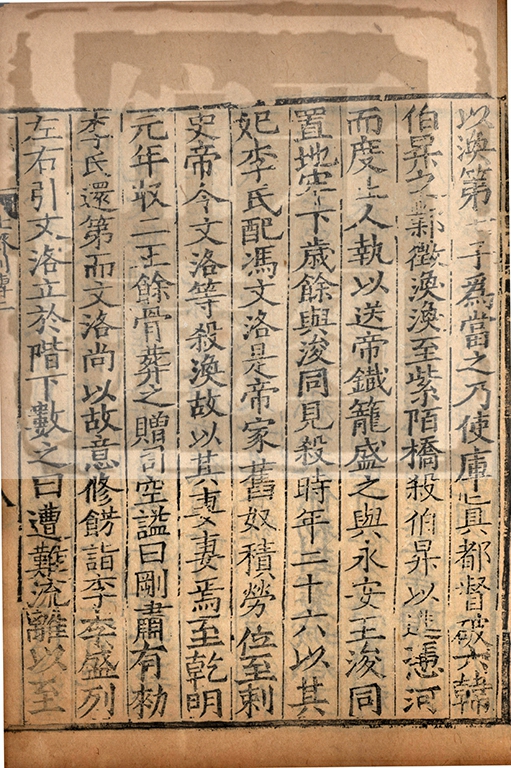 以渙第七子為當之乃使庫真都督破六韓
伯昇之鄴徵渙渙至紫陌橋殺伯昇以逃憑河
而度土人執以送帝鐵籠盛之與永安王浚同
置地牢下歲餘與浚同見殺時年二十六以其
妃李氏配馮文洛是帝家舊奴積勞位至刺
史帝令文洛等殺渙故以其妻妻焉至乾明
元年收二王餘骨葬之贈司空謚曰剛肅有勑
李氏還第而文洛尚以故意修飾詣李李盛列
左右引文洛立於階下數之曰遭難流離以至